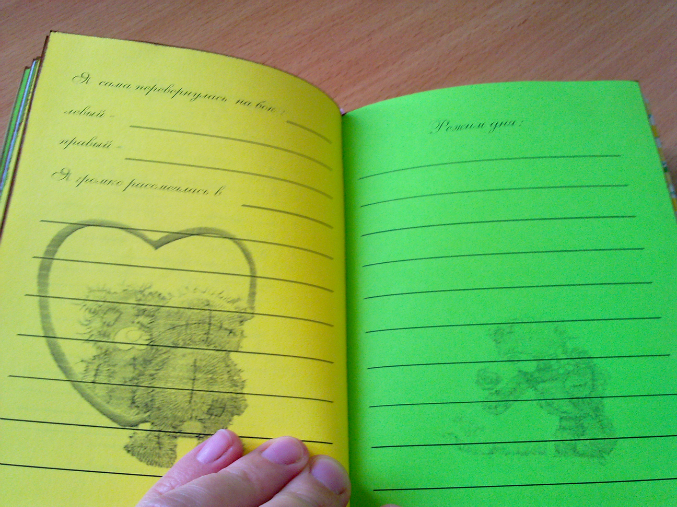 Я сама перевернулась на бок:
левый -
правый -
Я громко рассмеялась в
Режим дня: